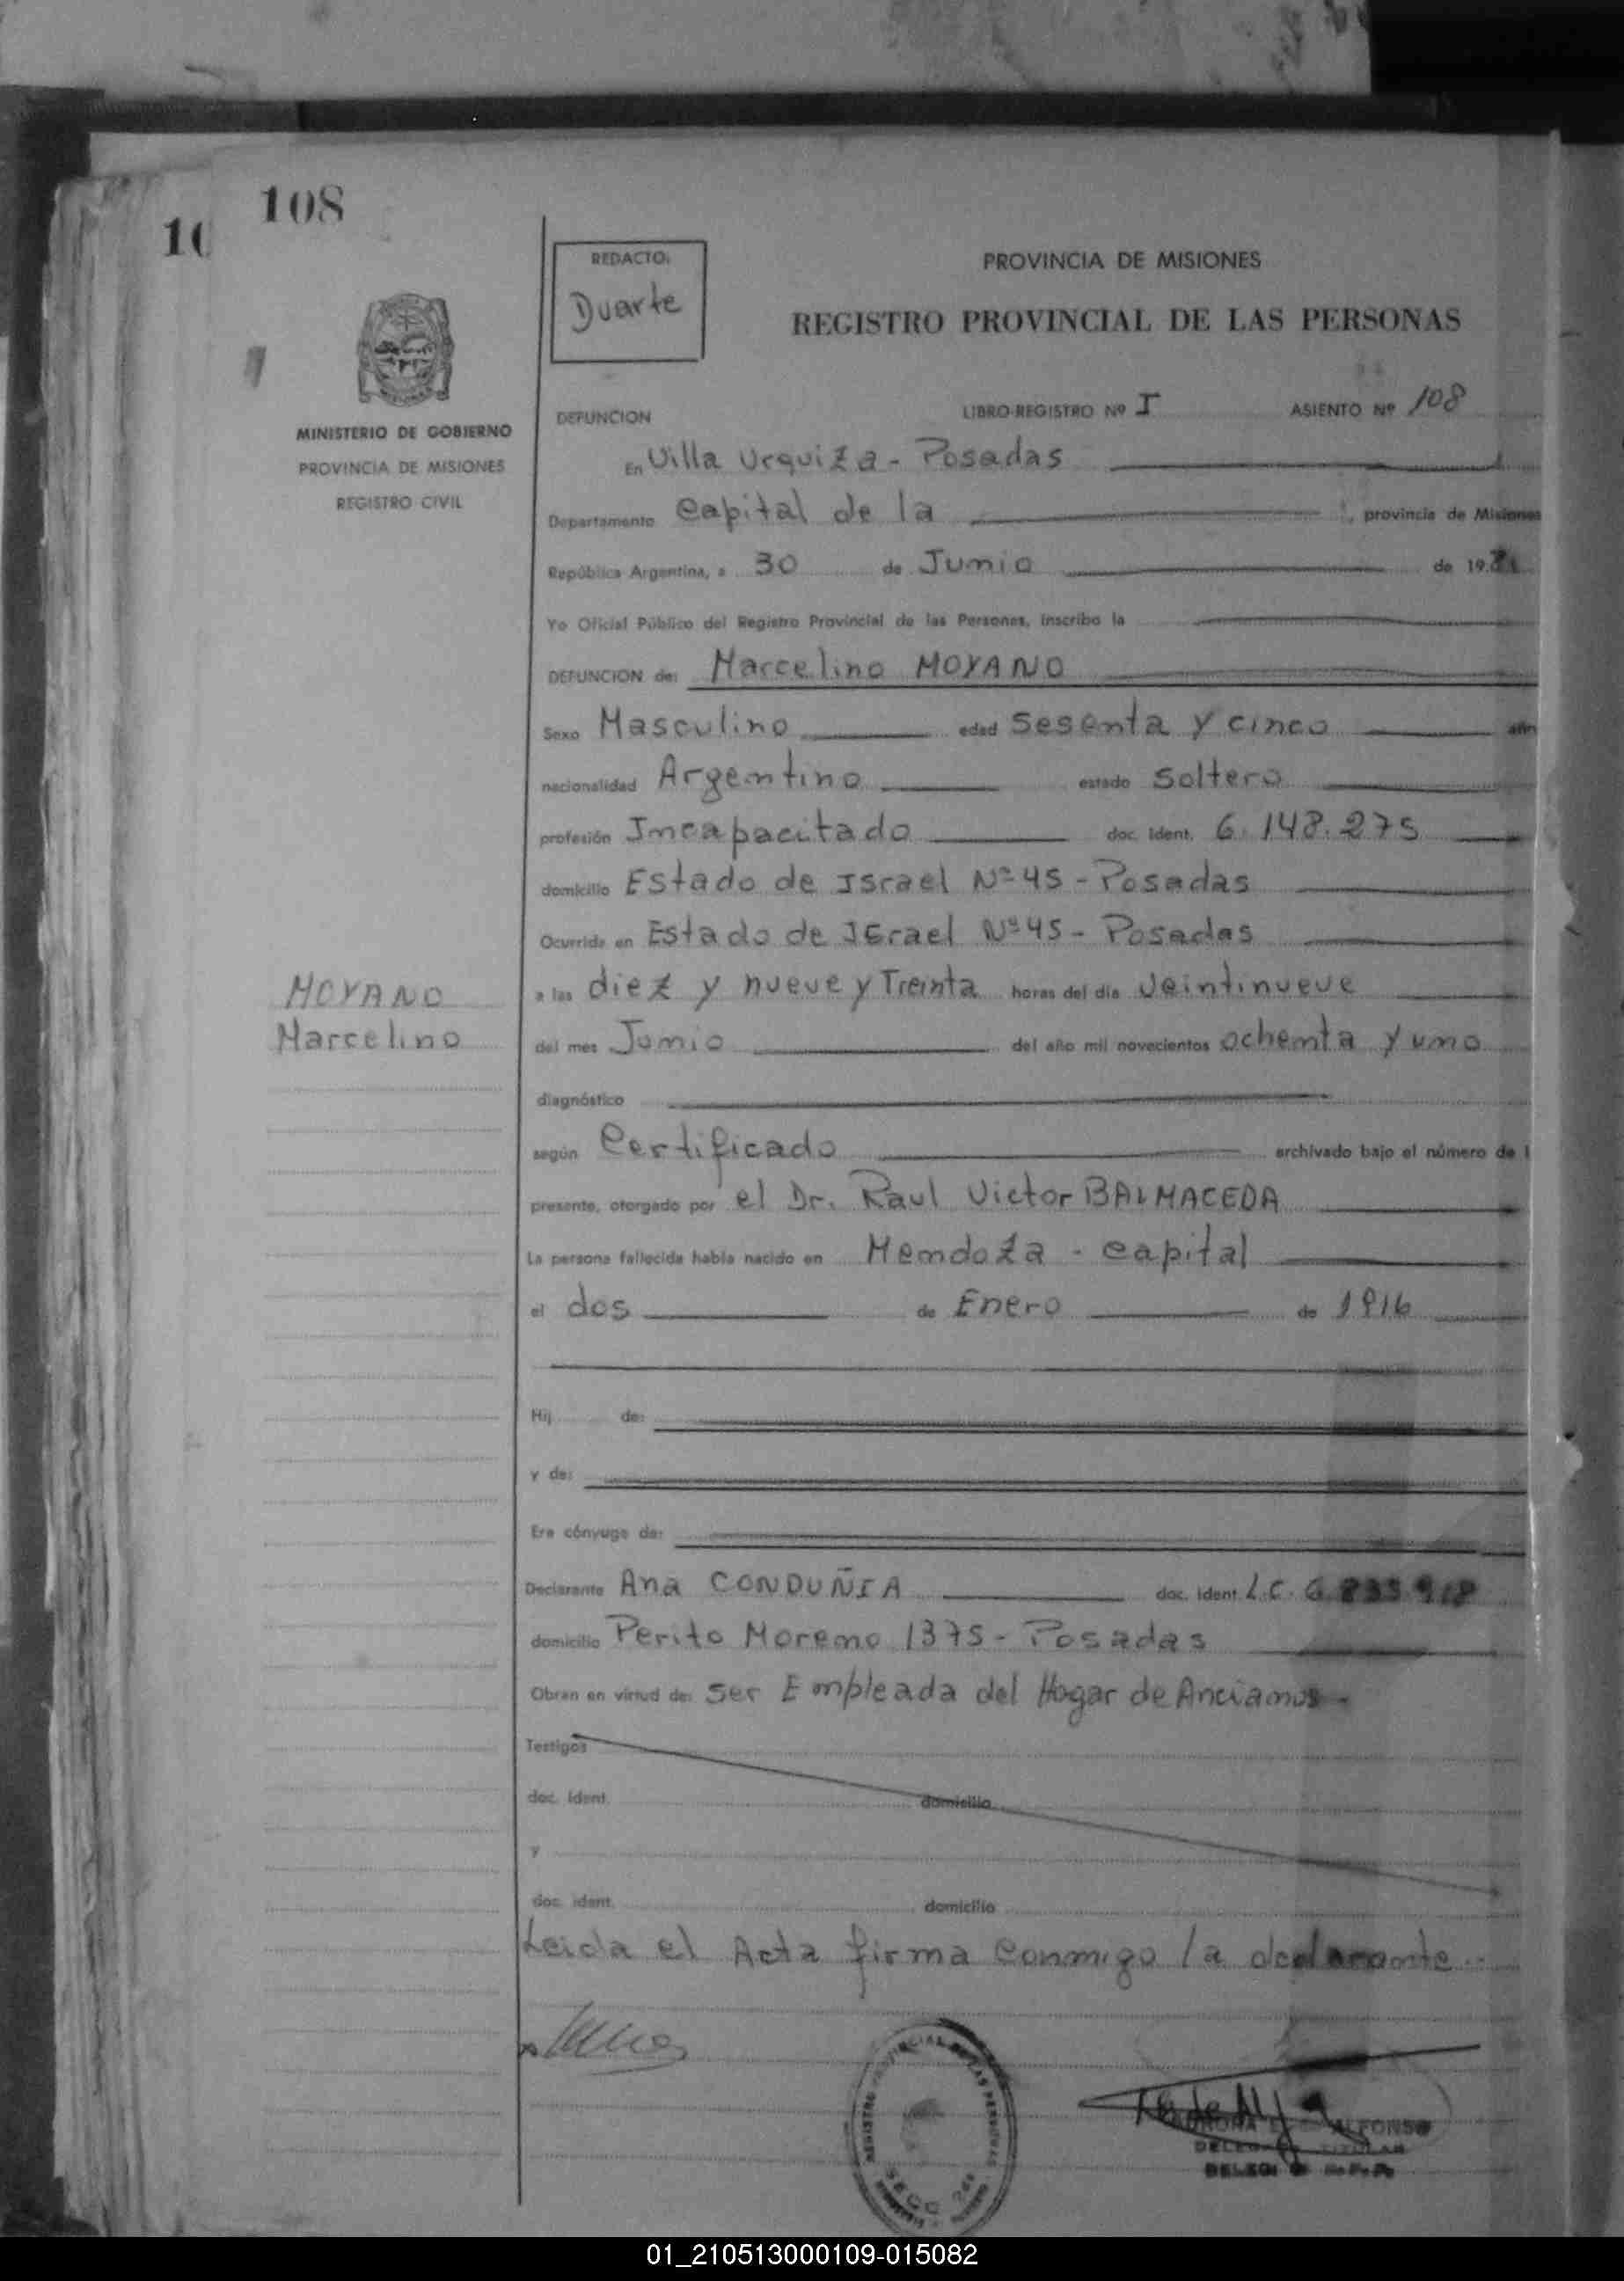 108
10
REDACTO:
Duarte
PROVINCIA DE MISIONES
REGISTRO PROVINCIAL DE LAS PERSONAS
MINISTERIO DE GOBIERNO
PROVINCIA DE MISIONES
REGISTRO CIVIL
DEFUNCION LIBRO-REGISTRO Nº I ASIENTO Nº 108
En Villa Urquiza - Posadas
Departamento Capital de la provincia de Misiones
República Argentina, a 30 de Junio de 1981
Yo Oficial Público del Registro Provincial de las Personas, inscribo la
DEFUNCION de: Marcelino MOYANO
Sexo Masculino edad Sesenta y cinco años
nacionalidad Argentino estado Soltero
profesión Incapacitado doc. ident. 6.148.275
domicilio Estado de Israel Nº 45 - Posadas
Ocurrida en Estado de Israel Nº 45 - Posadas
a las diez y nueve y Treinta horas del día Veintinueve
MOYANO
Marcelino
del mes Junio del año mil novecientos ochenta y uno
diagnóstico
según Certificado archivado bajo el número de l
presente, otorgado por el Dr. Raul Victor BALMACEDA
La persona fallecida había nacido en Mendoza - capital
el dos de Enero de 1916
Hij de:
y de:
Era cónyuge de:
Declarante Ana CONDUÑIA doc. ident. L.C. 6.835.918
domicilio Perito Moreno 1375 - Posadas
Obran en virtud de: Ser Empleada del Hogar de Ancianos -
Testigos
doc. ident. domicilio
y
doc. ident. domicilio
Leida el Acta firma conmigo la declarante
REGISTRO PROVINCIAL DE LAS PERSONAS
SECC
AURORA ALFONSO
DELEGADA TITULAR
01_210513000109-015082